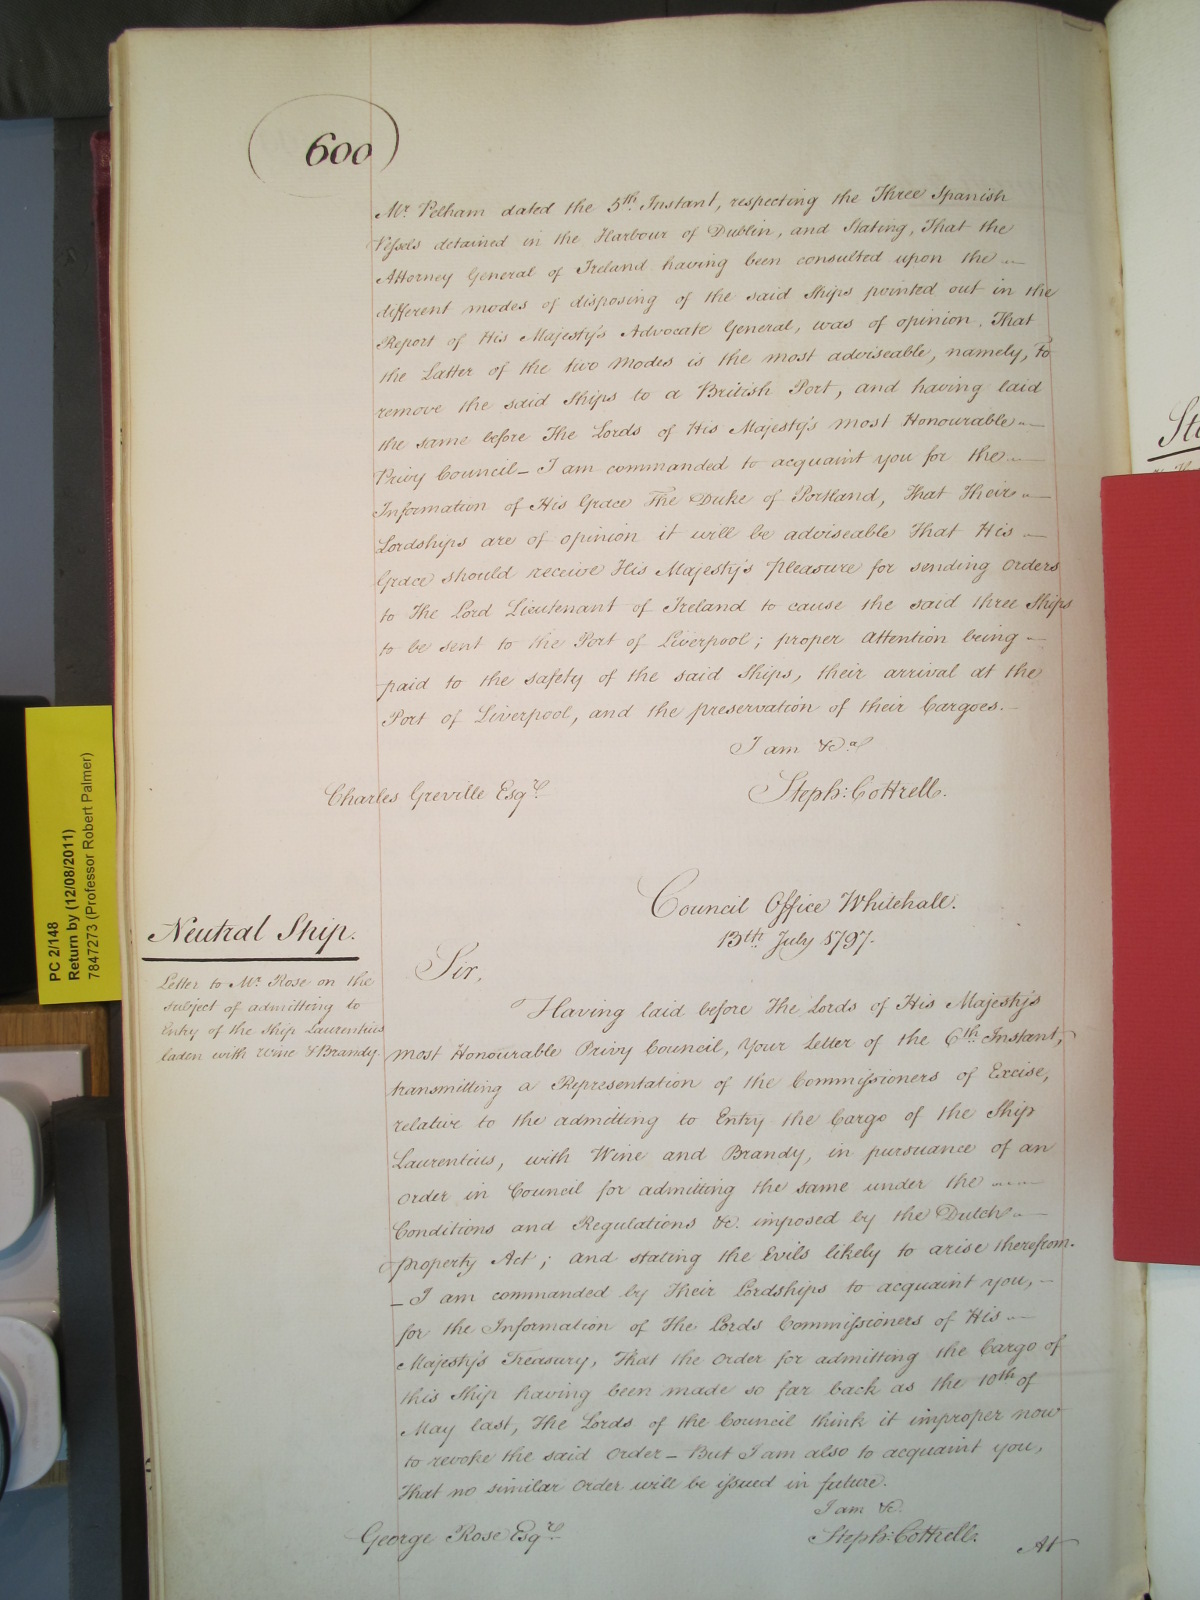 600
Mr. Pelham dated the 5th. Instant, respecting the Three Spanish
Vessels detained in the Harbour of Dublin, and Stating, That the
Attorney General of Ireland having been consulted upon the
different modes of disposing of the said Ships pointed out in the
Report of His Majesty's Advocate General, was of opinion, That
the Latter of the two Modes is the most adviseable, namely, To
remove the said Ships to a British Port, and having laid
the same before The Lords of His Majesty's most Honourable
Privy Council – I am commanded to acquaint you for the
Information of His Grace The Duke of Portland, That Their
Lordships are of opinion it will be adviseable That His
Grace should receive His Majesty's Pleasure for sending Orders
to The Lord Lieutenant of Ireland to cause the said three Ships
to be sent to the Port of Liverpool; proper Attention being
paid to the safety of the said Ships, their arrival at the
Port of Liverpool, and the preservation of their Cargoes.
I am &ca
Charles Greville Esqre.
Steph: Cottrell.
Council Office Whitehall.
13th July 1797.
Neutral Ship.
Letter to Mr. Rose on the
subject of admitting to
Entry of the Ship Laurentius
laden with Wine & Brandy.
Sir,
Having laid before The Lords of His Majesty's
most Honourable Privy Council, Your Letter of the 6th. Instant,
transmitting a Representation of the Commissioners of Excise,
relative to the admitting to Entry the Cargo of the Ship
Laurentius, with Wine and Brandy, in pursuance of an
Order in Council for admitting the same under the
Conditions and Regulations &c. imposed by the Dutch
Property Act; and stating the Evils likely to arise therefrom.
– I am commanded by Their Lordships to acquaint you,
for the Information of The Lords Commissioners of His
Majesty's Treasury, That the Order for admitting the Cargo of
this Ship having been made so far back as the 10th of
May last, The Lords of the Council think it improper now
to revoke the said Order – But I am also to acquaint you,
That no similar Order will be issued in future.
I am &c.
George Rose Esqre.
Steph: Cottrell.
At
PC 2/148
Return by (12/08/2011)
7847273 (Professor Robert Palmer)